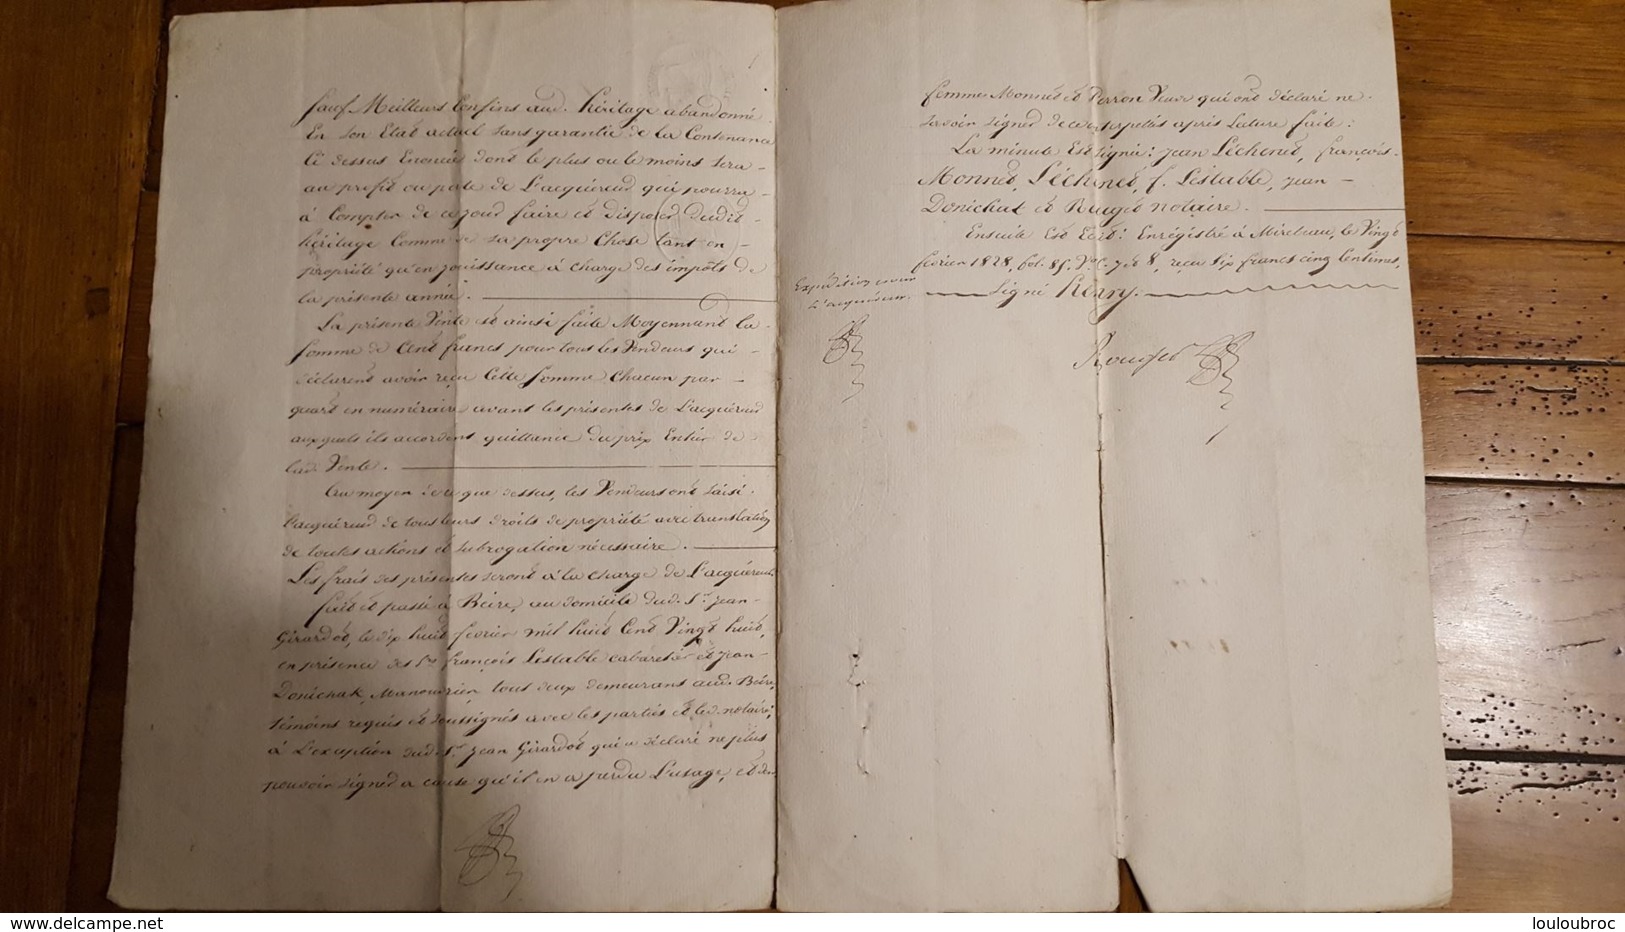 sauf Meilleurs Confins aud. héritage abandonné
En son Etat actuel sans garantie de la Contenance
Ci dessus Enoncée dont le plus ou le moins sera
au profit ou perte de L'acquéreur qui pourra
à Compter de ce jour faire et disposer dudit
héritage Comme de sa propre Chose tant en
propriété qu'en jouissance à charge des impôts de
la présente année.
La présente Vente est ainsi faite Moyennant la
somme de Cent francs pour tous les Vendeurs qui
déclarent avoir reçu Cette somme Chacun par
quart en numéraire avant les présentes de L'acquéreur
auxquels ils accordent quittance du prix Entier de
lad. Vente.
Au moyen de ce que dessus, les Vendeurs ont saisi
l'acquéreur de tous leurs droits de propriété avec translation
de toutes actions et subrogation nécessaire.
Les frais des présentes seront à la charge de L'acquéreur
fait et passé à Beire, au domicile dud. Sr. Jean
Girardot, le dix huit février mil huit Cent Vingt huit,
en présence des Srs. françois Lestable cabaretier et Jean
Donichak, Manouvrier, tous deux demeurant aud. Beire,
témoins requis et soussignés avec les parties et led. notaire;
à L'exception dud. Sr. Jean Girardot qui a déclaré ne plus
pouvoir signer a cause qu'il en a perdu L'usage, et des
femmes Monnet et Perron Veuve qui ont déclaré ne
savoir signer de ce interpellés après Lecture faite:
La minute Est signée: Jean Léchenet, françois
Monnet, Léchenet, f. Lestable, Jean
Donichat et Rouget notaire.
Ensuite Est Ecrit: Enregistré à Mirebeau, le Vingt
février 1828, fol. 85. Vo. C. 7 et 8, reçu six francs cinq Centimes,
signé henry.
Expédition pour
L'acquéreur.
Rouget
louloubroc